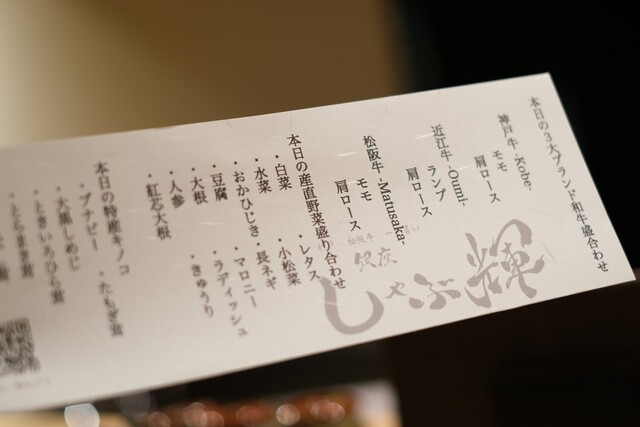 本日の3大ブランド和牛盛合わせ
神戸牛 -Kobe-
モモ
肩ロース
近江牛 -Oumi-
ランプ
肩ロース
松阪牛 -Matusaka-
モモ
肩ロース
本日の産直野菜盛り合わせ
・白菜 ・レタス
・水菜 ・小松菜
・おかひじき ・長ネギ
・豆腐 ・マロニー
・大根 ・ラディッシュ
・人参 ・きゅうり
・紅芯大根
本日の特産キノコ
・ブナピー ・たもぎ茸
・大黒しめじ
・ときいろひら茸
・とらまき茸
松阪牛 一
銀座
しゃぶ輝